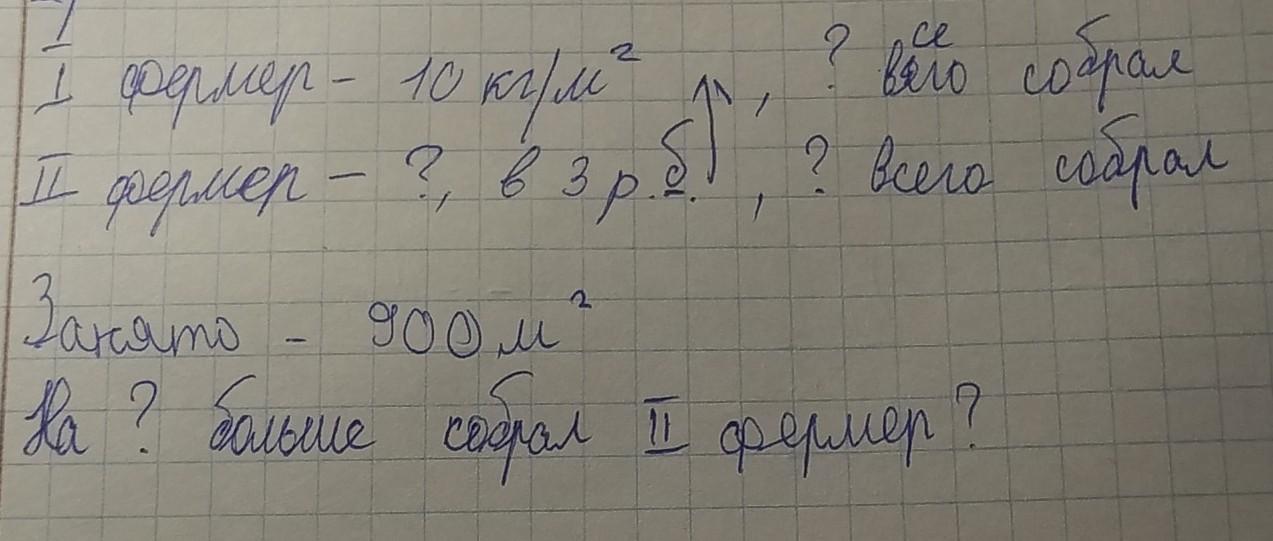 I
I фермер - 10 кг/м², ? всего собрал
II фермер - ?, в 3 р. б. ↑, ? всего собрал
Занято - 900 м²
На ? больше собрал II фермер?